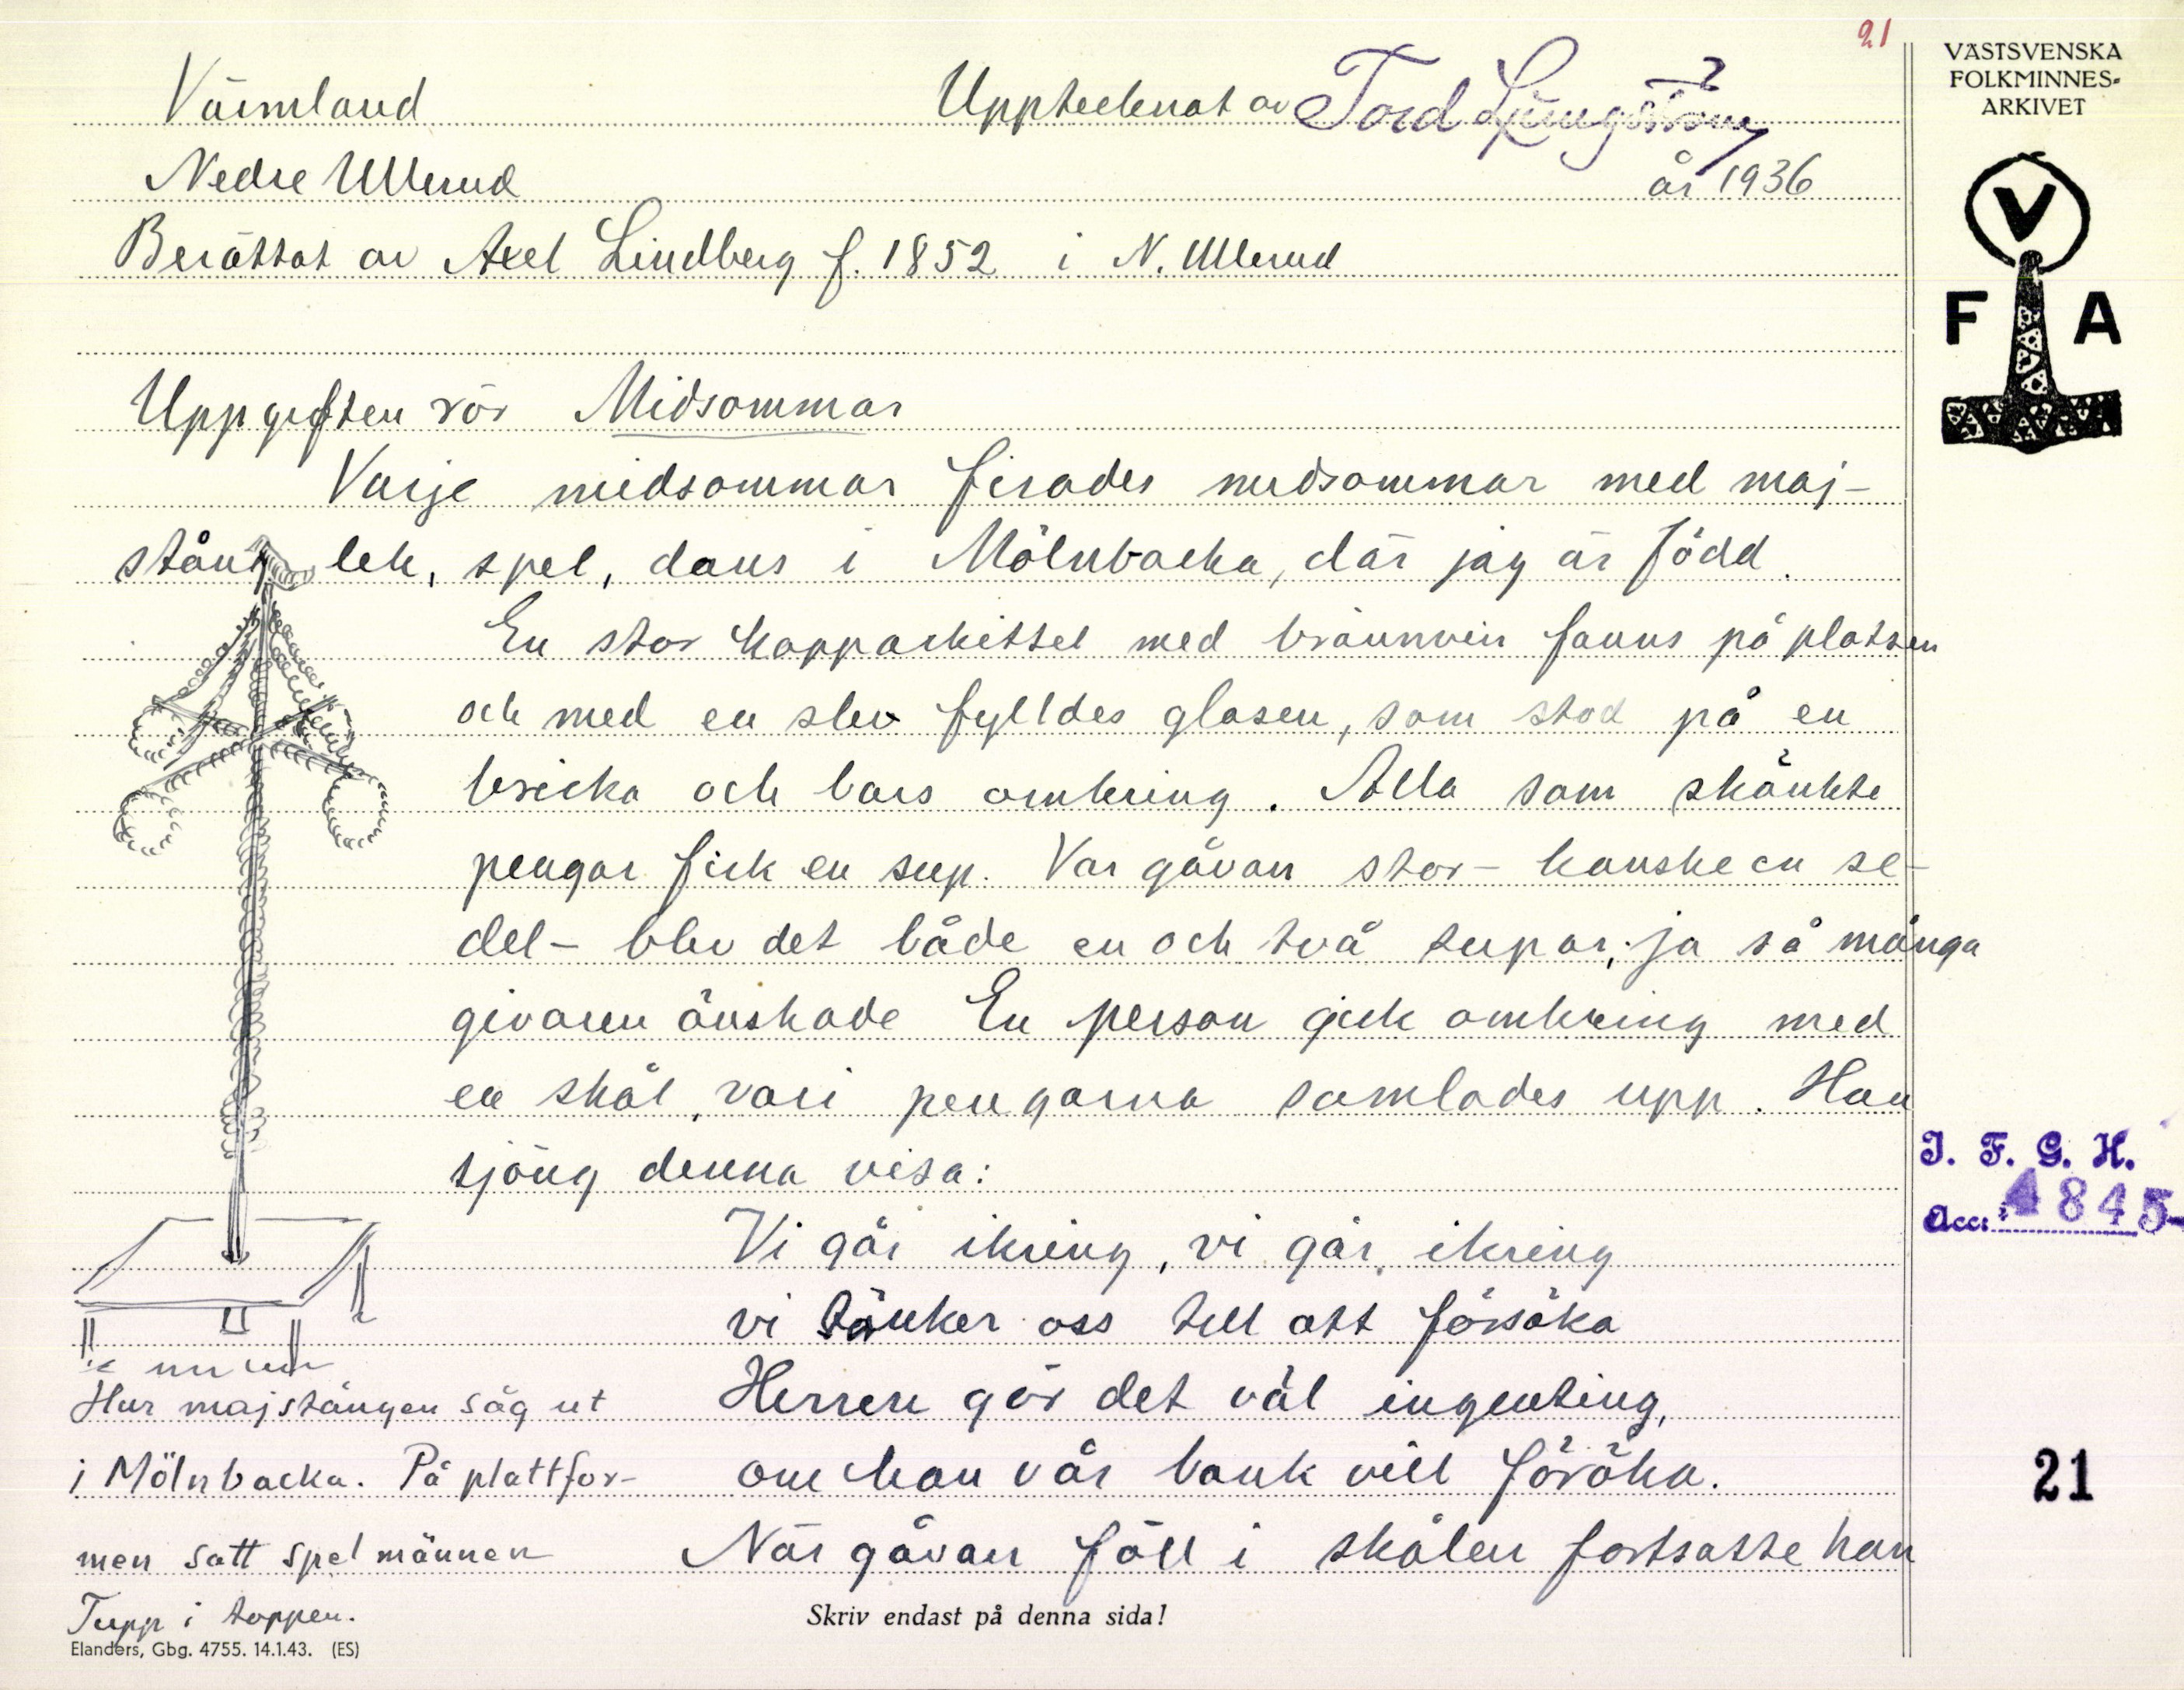 21
VÄSTSVENSKA
FOLKMINNES-
ARKIVET
V
F A
Värmland
Upptecknat av Tord Ljungström
Nedre Ullerud
år 1936
Berättat av Axel Lindberg f. 1852 i N. Ullerud
Uppgiften rör Midsommar
Varje midsommar firades midsommar med maj-
stång lek, spel, dans i Mölnbacka, där jag är född.
En stor kopparkittel med brännvin fanns på platsen
och med en slev fylldes glasen, som stod på en
bricka och bars omkring. Alla som skänkte
pengar fick en sup. Var gåvan stor - kanske en se-
del - blev det både en och två supar, ja så många
givaren önskade En person gick omkring med
en skål, vari pengarna samlades upp. Han
sjöng denna visa:
Vi går ikring, vi går ikring
vi tänker oss till att försöka
Herren gör det väl ingenting,
om han vår bank vill föröka.
När gåvan föll i skålen fortsatte han
Hur majstången såg ut
i Mölnbacka. På plattfor-
men satt spelmännen
Tupp i toppen.
I. F. G. H.
Acc: 4845
21
Skriv endast på denna sida!
Elanders, Gbg. 4755. 14.1.43. (ES)